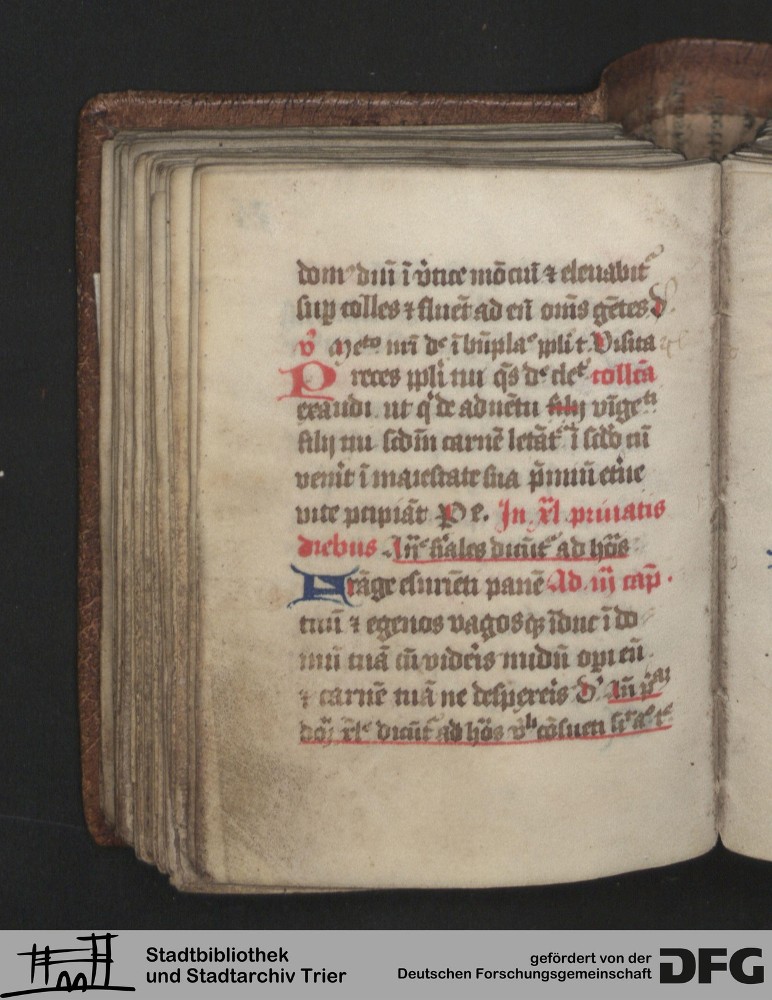 dom⁹ dn̄i ī v̾tice mōciū ⁊ eleuabit᷑
sup colles ⁊ fluēt ad eū om̄s gētes d
v̾ Me⁰ nr̄i dᵉ ī bn̄pla pl̄i t Visita
Preces ipl̄i tui qs dᵉ cle collcā
exaudi ut q de aduētu filij vīgeti
filij tui scdm̄ carnē letāt᷑ ī scdo cū
venīt ī maiestate sua p̄miū et̄ne
vite pcipiāt P e. In xl priuatis
diebus In̄ fiales dicūt᷑ ad hōs
Frāge esuriēti panē Ad iij cap̄.
tuū ⁊ egenos vagosqꝫ īduc ī do
mū tuā cū videris nudū opi eū
⁊ carnē tuā ne despexeris d̾ In
xl dicūt᷑ ad hōs cōsueti
Stadtbibliothek
und Stadtarchiv Trier
gefördert von der
Deutschen Forschungsgemeinschaft
DFG